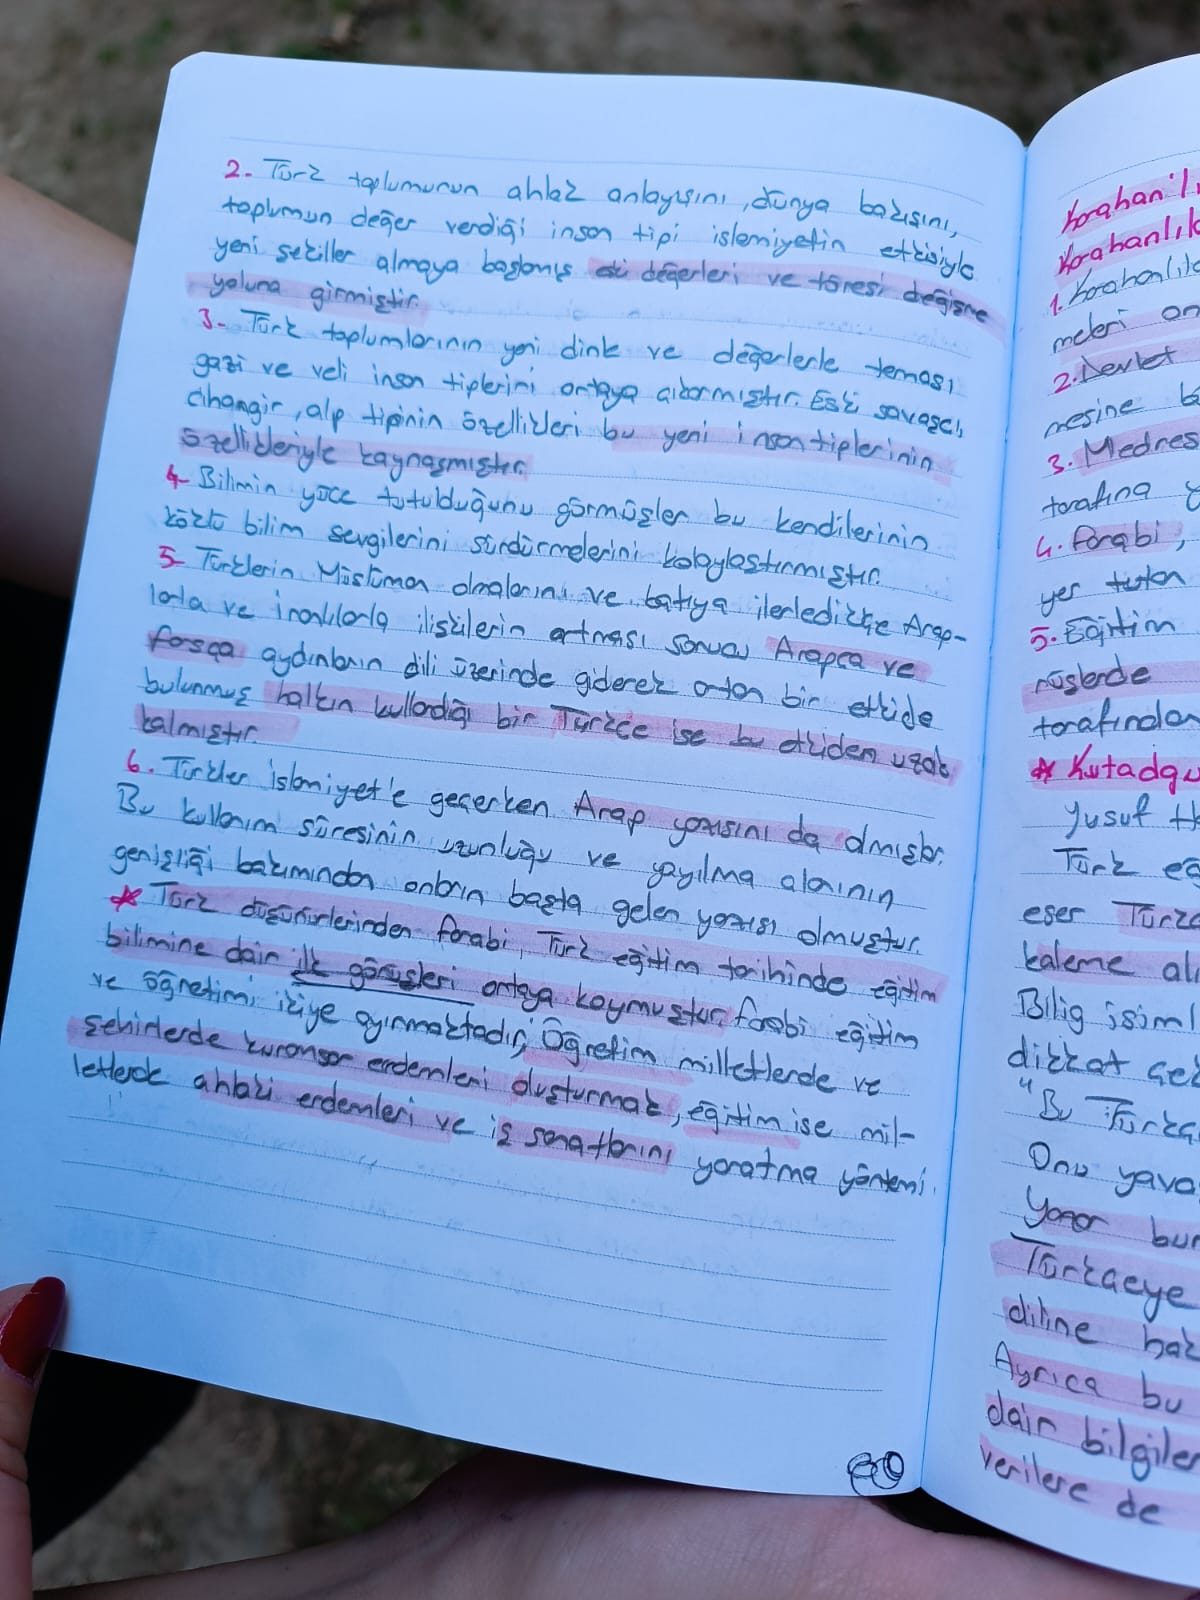 2. Türk toplumunun ahlak anlayışını, dünya bakışını,
toplumun değer verdiği insan tipi islamiyetin etkisiyle
yeni şekiller almaya başlamış eski değerleri ve töresi değişme
yoluna girmiştir.
3. Türk toplumlarının yeni dinle ve değerlerle teması
gazi ve veli insan tiplerini ortaya çıkarmıştır. Eski savaşçı,
cihangir, alp tipinin özellikleri bu yeni insan tiplerinin
özellikleriyle kaynaşmıştır.
4. Bilimin yüce tutulduğunu görmüşler bu kendilerinin
köklü bilim sevgilerini sürdürmelerini kolaylaştırmıştır.
5. Türklerin Müslüman olmalarını ve batıya ilerledikçe Arap-
larla ve İranlılarla ilişkilerin artması sonucu Arapça ve
farsça aydınların dili üzerinde giderek artan bir etkide
bulunmuş halkın kullandığı bir Türkçe ise bu etkiden uzak
kalmıştır.
6. Türkler islamiyet'e geçerken Arap yazısını da almışlar.
Bu kullanım süresinin uzunluğu ve yayılma alanının
genişliği bakımından onların başta gelen yazısı olmuştur.
* Türk düşünürlerinden farabi, Türk eğitim tarihinde eğitim
bilimine dair ilk görüşleri ortaya koymuştur. farabi eğitim
ve öğretimi ikiye ayırmaktadır; Öğretim milletlerde ve
şehirlerde kuramsar erdemleri oluşturmak, eğitim ise mil-
letlerde ahlaki erdemleri ve iş sanatlarını yaratma yöntemi.
Karahan'lı
Karahanlık
1. Karahanlıla
meleri an
2. Devlet
mesine b
3. Medres
tarafına y
4. farabi,
yer tutan
5. Eğitim
müşlerde
tarafından
* Kutadgu
Yusuf H
Türk eğ
eser Türkç
kaleme alı
Bilig isiml
dikkat çek
"Bu Türkç
Onu yava
Yanar bur
Türkçeye
diline hak
Ayrıca bu
dair bilgiler
verilere de